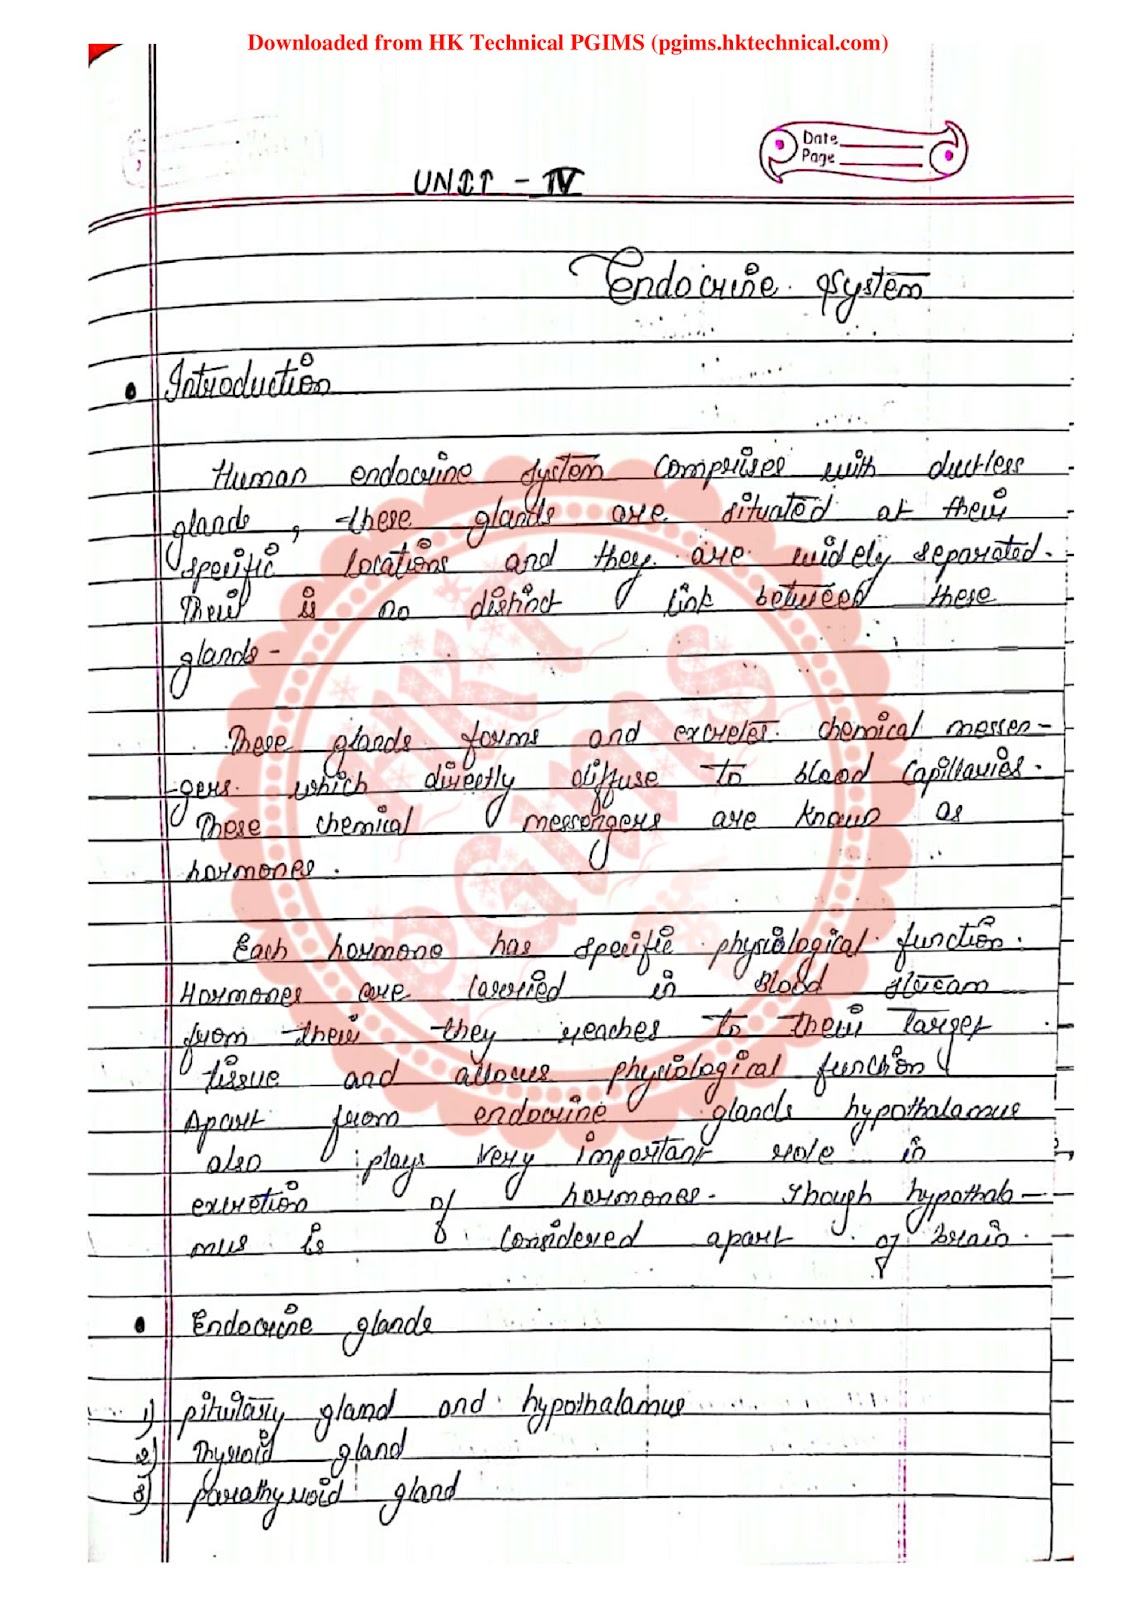 Downloaded from HK Technical PGIMS (pgims.hktechnical.com)
Date
Page
UNIT - IV
Endocrine System
Introduction
Human endocrine system comprises with ductless
glands, these glands are situated at their
specific locations and they are widely separated.
Their is no distinct link between these
glands-
These glands forms and excretes chemical messen-
gers which directly diffuse to blood capillaries.
These chemical messengers are known as
hormones.
Each hormone has specific physiological function.
Hormones are carried in Blood stream
from their they reaches to their target
tissue and allows physiological function
Apart from endocrine glands hypothalamus
also plays very important role in
excretion of hormones. Though hypothala-
mus is considered apart of brain.
Endocrine glands
1) pitutary gland and hypothalamus
2) Thyroid gland
3) parathyroid gland
HKT
PGIMS